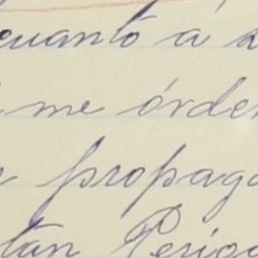 cuanto á
me órden
propaga
tan Perigo